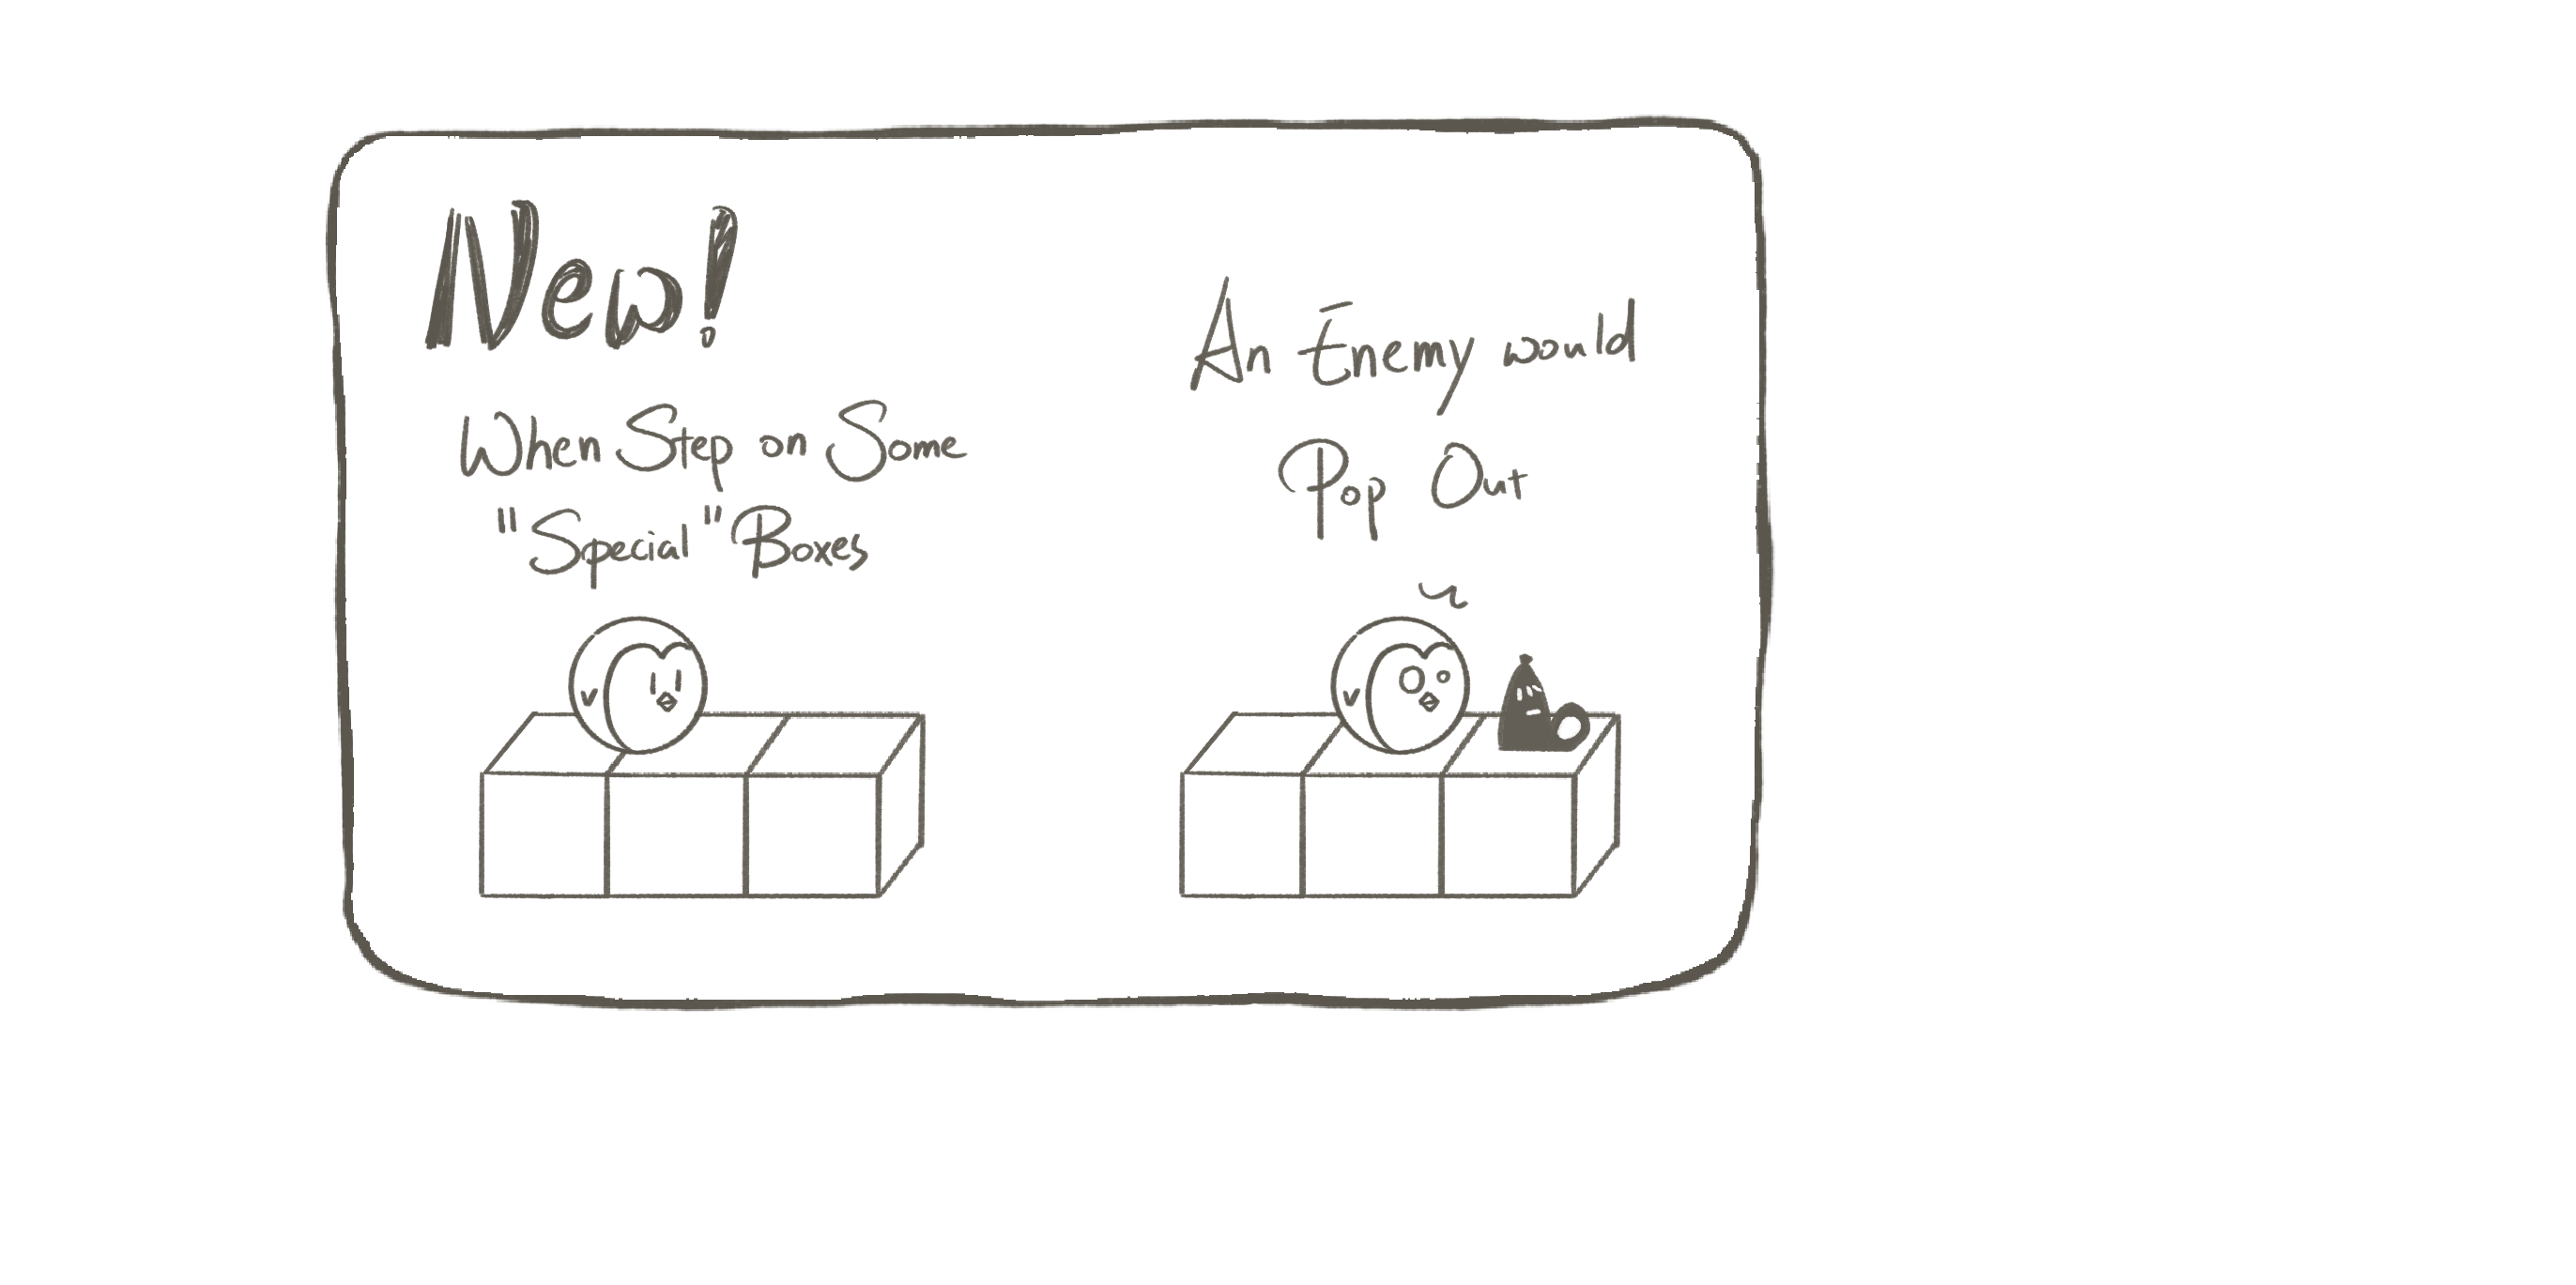 New!
When Step on Some
"Special" Boxes
An Enemy would
Pop Out